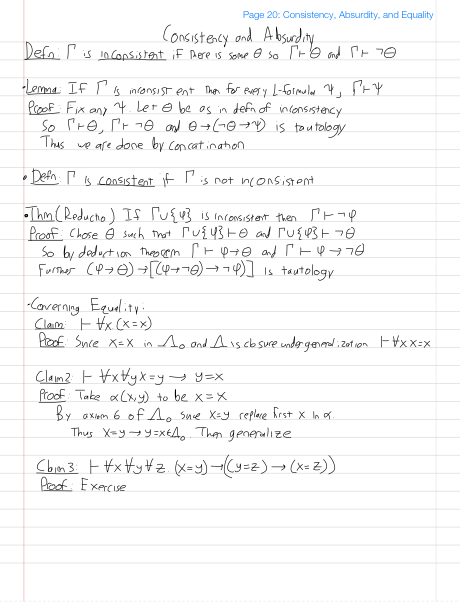 Page 20: Consistency, Absurdity, and Equality
Consistency and Absurdity
Defn: Γ is inconsistent if there is some θ so Γ⊢θ and Γ⊢¬θ
•Lemma: If Γ is inconsistent then for every L-formula Ψ, Γ⊢Ψ
Proof: Fix any Ψ. Let θ be as in defn of inconsistency
So Γ⊢θ, Γ⊢¬θ and θ→(¬θ→Ψ) is tautology
Thus we are done by concatination
• Defn: Γ is consistent if Γ is not inconsistent
•Thm (Reductio) If Γ∪{φ} is inconsistent then Γ⊢¬φ
Proof: Chose θ such that Γ∪{φ}⊢θ and Γ∪{φ}⊢¬θ
So by deduction theorem Γ⊢φ→θ and Γ⊢φ→¬θ
Further (φ→θ)→[(φ→¬θ)→¬φ)] is tautology
•Converning Equality:
Claim: ⊢∀x(x=x)
Proof: Since x=x in Λ₀ and Λ is closure under generalization ⊢∀x x=x
Claim2: ⊢∀x∀y x=y → y=x
Proof: Take α(x,y) to be x=x
By axiom 6 of Λ₀ since x=y replace first x in α.
Thus x=y→y=x∈Λ₀. Then generalize
Claim 3: ⊢∀x∀y∀z (x=y)→((y=z)→(x=z))
Proof: Exercise